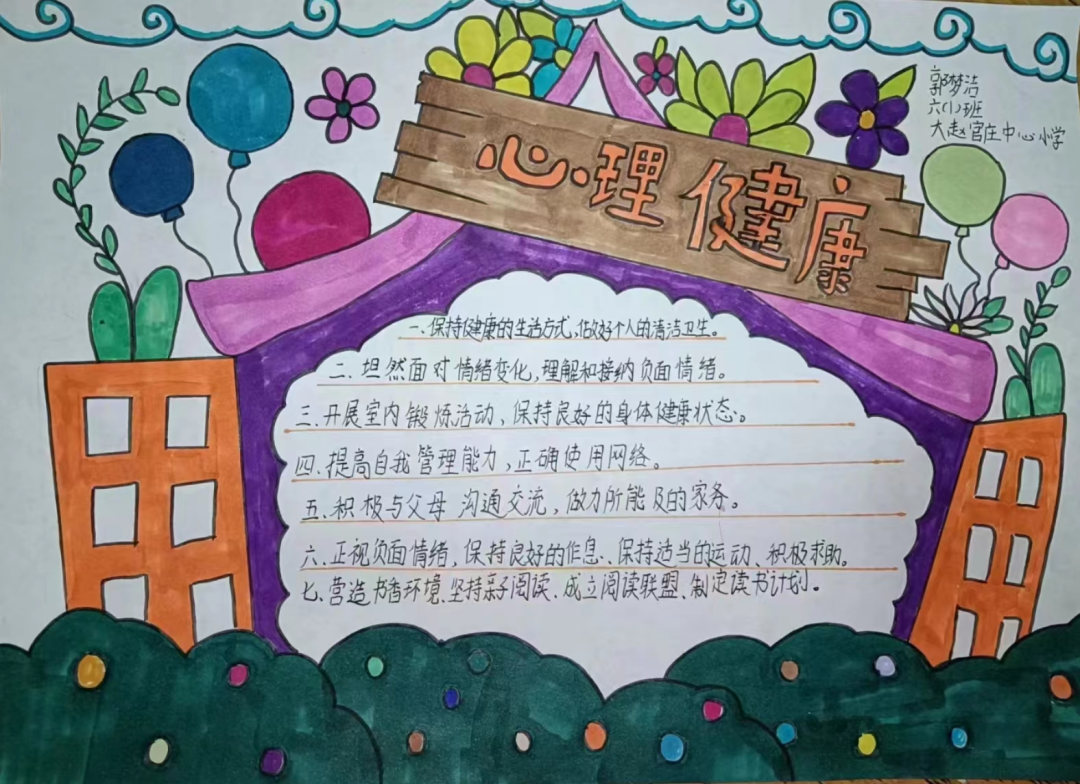 心理健康
郭梦洁
六(1)班
大赵官庄中心小学
一、保持健康的生活方式,做好个人的清洁卫生。
二、坦然面对情绪变化,理解和接纳负面情绪。
三、开展室内锻炼活动、保持良好的身体健康状态。
四、提高自我管理能力,正确使用网络。
五、积极与父母沟通交流,做力所能及的家务。
六、正视负面情绪,保持良好的作息、保持适当的运动、积极求助。
七、营造书香环境、坚持亲子阅读、成立阅读联盟、制定读书计划。